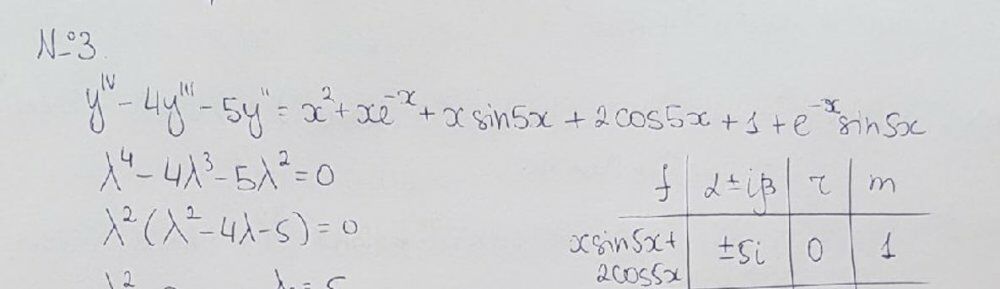 №3.
y^IV - 4y^III - 5y^II = x² + xe^-x + x sin5x + 2cos5x + 1 + e^-x sin5x
λ⁴ - 4λ³ - 5λ² = 0
λ²(λ² - 4λ - 5) = 0
f | α±iβ | r | m
x sin5x + 2cos5x | ±5i | 0 | 1